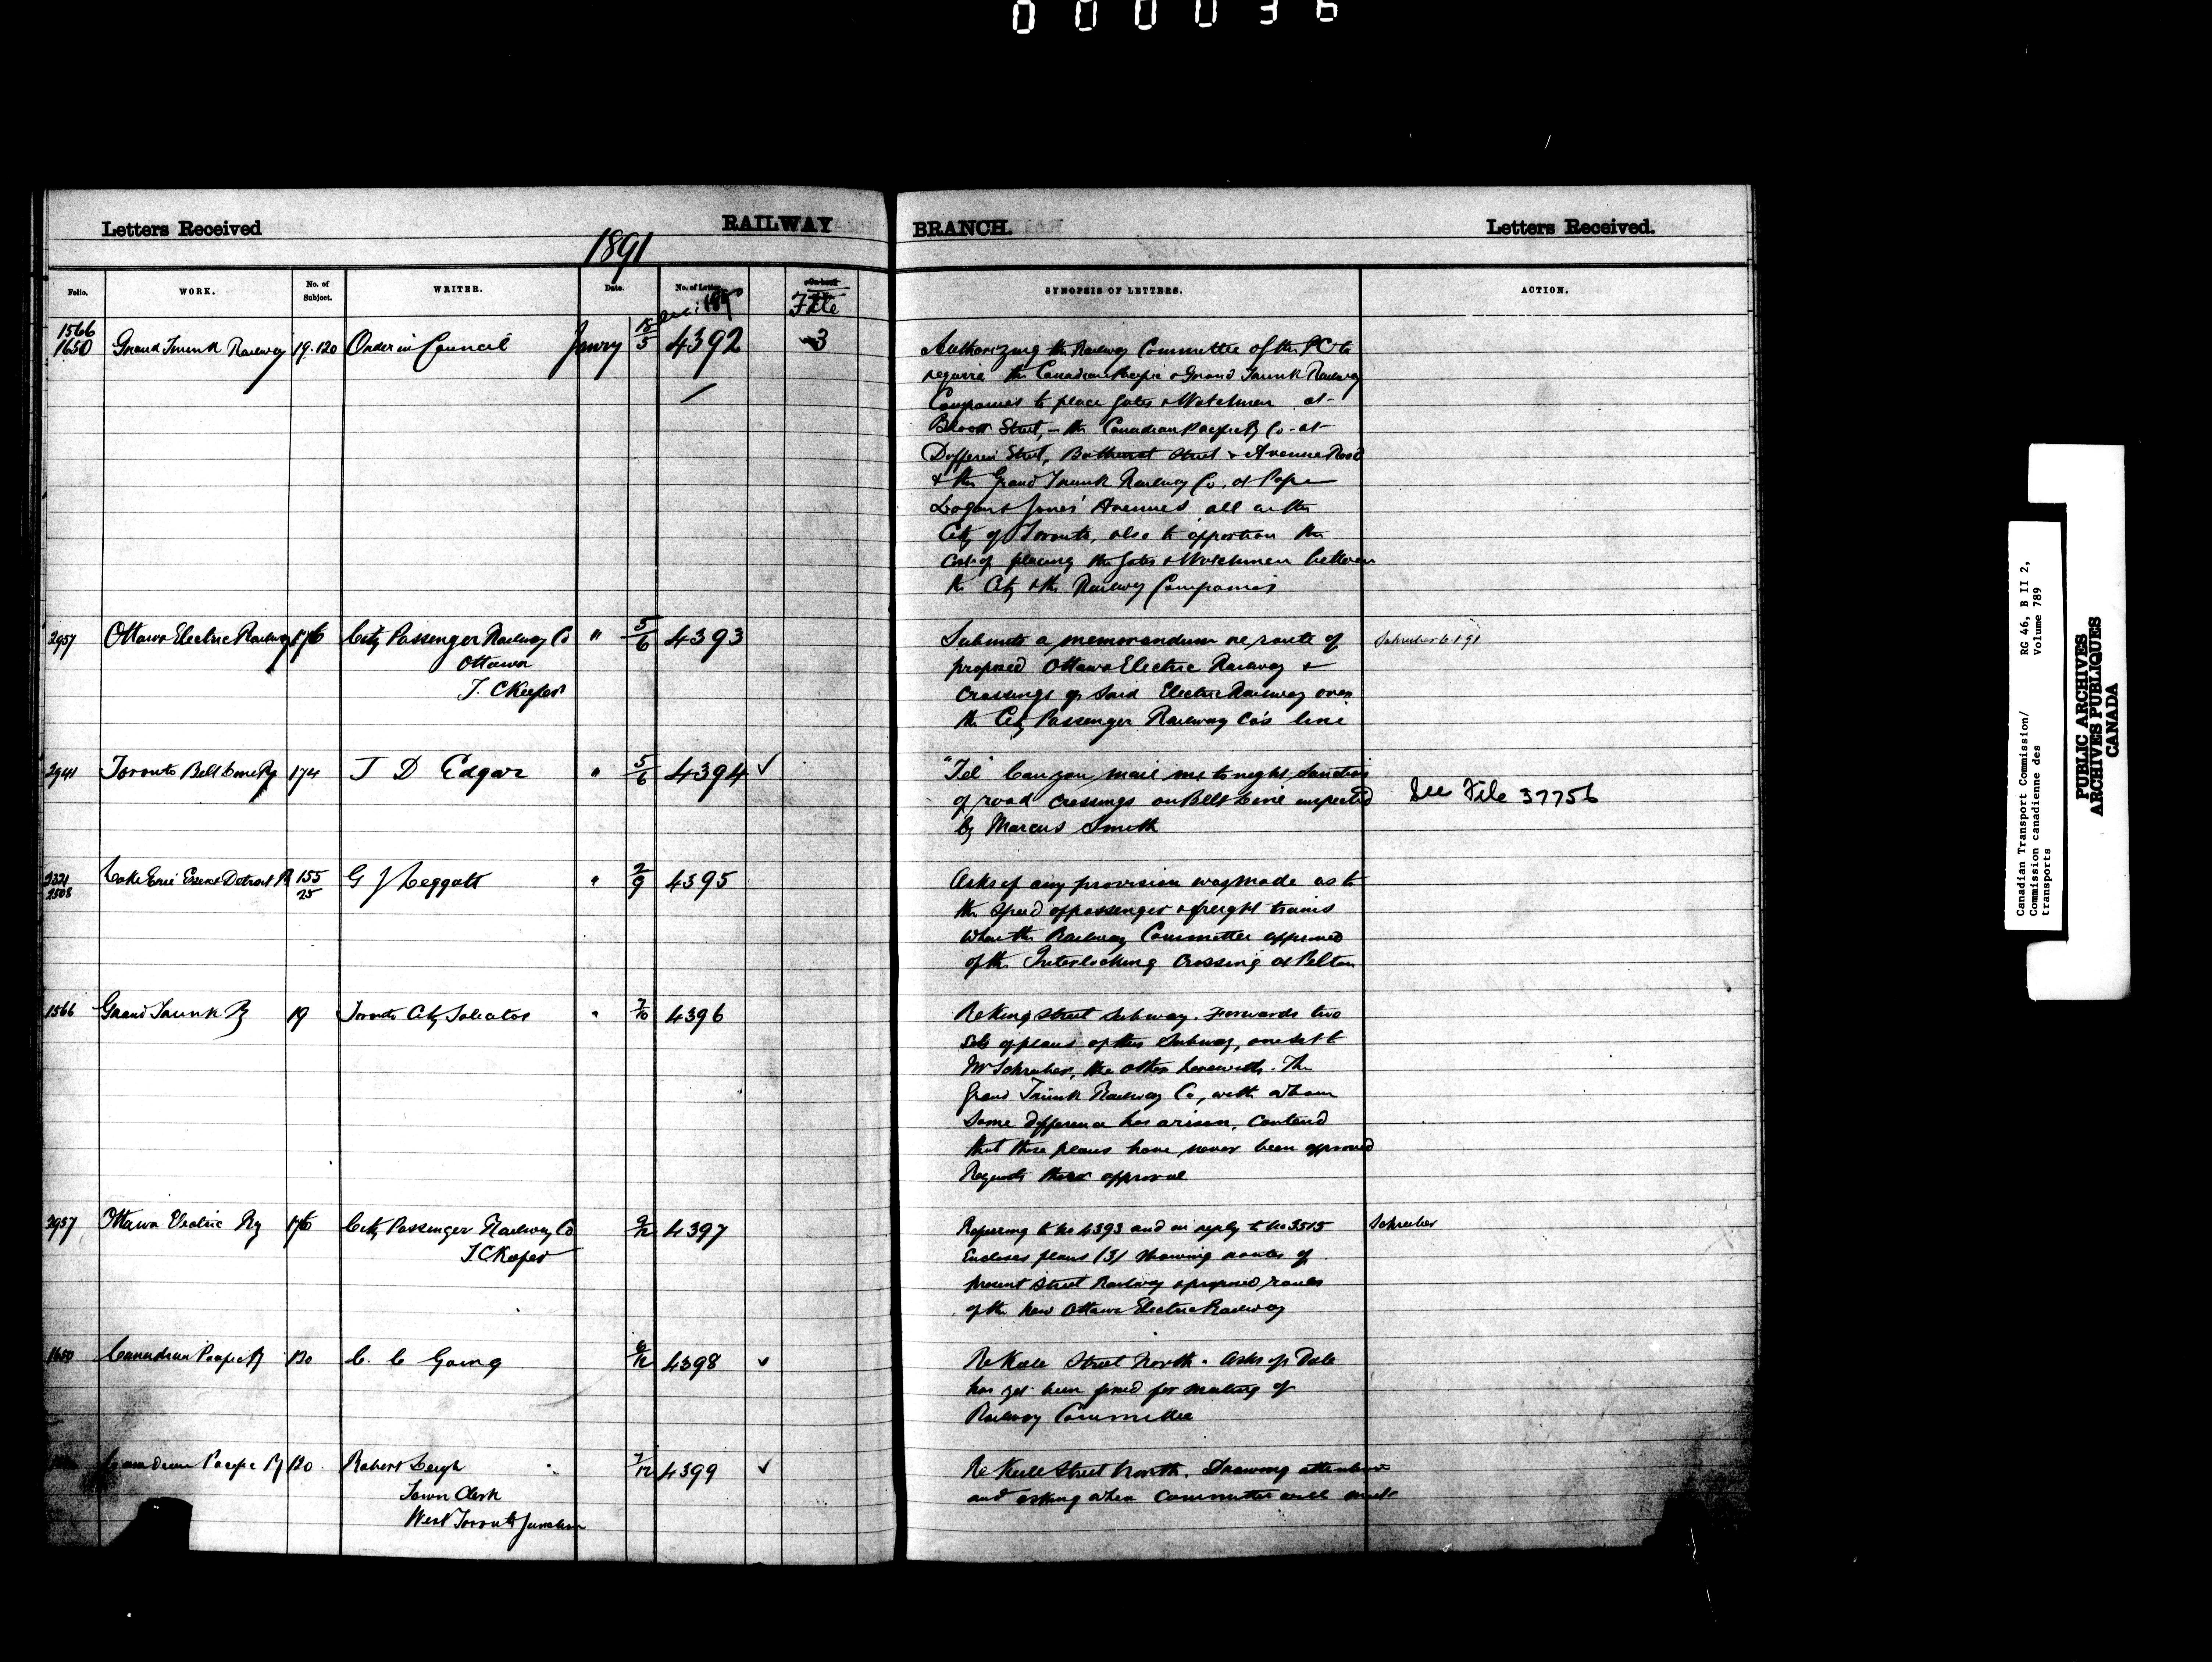 000036
Letters Received
RAILWAY
BRANCH.
Letters Received.
1891
Folio.
WORK.
No. of Subject.
WRITER.
Date.
No. of Letter.
File
SYNOPSIS OF LETTERS.
ACTION.
1566
1650 Grand Trunk Railway 19.120 Order in Council Janry 5 4392 3
Authorizing the Railway Committee of the PC to
require the Canadian Pacific & Grand Trunk Railway
Companies to place Gates & Watchmen at
Bloor Street, - the Canadian Pacific Ry Co - at
Dufferin Street, Bathurst Street & Avenue Road
& the Grand Trunk Railway Co. at Pape
Logan & Jones' Avenues all in the
City of Toronto, also to apportion the
cost of placing the Gates & Watchmen between
the City & the Railway Companies
2957 Ottawa Electric Railway 176 City Passenger Railway Co " 5/6 4393
Ottawa
T. C Keefer
Submits a memorandum re route of
proposed Ottawa Electric Railway &
crossings of said Electric Railway over
the City Passenger Railway Co's line
Schreiber 6 1 91
2941 Toronto Belt Line Ry 174 J D Edgar " 5/6 4394 ✓
"Tel" Can you mail me tonight sanction
of road crossings on Belt Line inspected
by Marcus Smith
See File 37756
2321
2508 Lake Erie Essex & Detroit R 155/25 G J Leggatt " 2/9 4395
Asks if any provision was made as to
the speed of passenger & freight trains
when the Railway Committee approved
of the Interlocking Crossing at Pelton
1566 Grand Trunk Ry 19 Toronto City Solicitor " 7/10 4396
Re King Street Subway. Forwards two
sets of plans of this Subway, one set to
Mr Schreiber, the other herewith. The
Grand Trunk Railway Co, with whom
some difference has arisen, contend
that these plans have never been approved
Requests their approval
2957 Ottawa Electric Ry 176 City Passenger Railway Co 9/12 4397
T. C Keefer
Referring to No 4393 and in reply to No 3515
Encloses plans (3) showing routes of
present Street Railway & proposed routes
of the new Ottawa Electric Railway
Schreiber
1650 Canadian Pacific Ry 120 C. C Going 6/12 4398 ✓
Re Keele Street North. Asks if Date
has yet been fixed for meeting of
Railway Committee
Canadian Pacific Ry 120 Robert Leigh 7/12 4399 ✓
Town Clerk
West Toronto Junction
Re Keele Street North. Drawing attention
and asking when Committee will meet
Canadian Transport Commission/
Commission canadienne des
transports
RG 46, B II 2,
Volume 789
PUBLIC ARCHIVES
ARCHIVES PUBLIQUES
CANADA